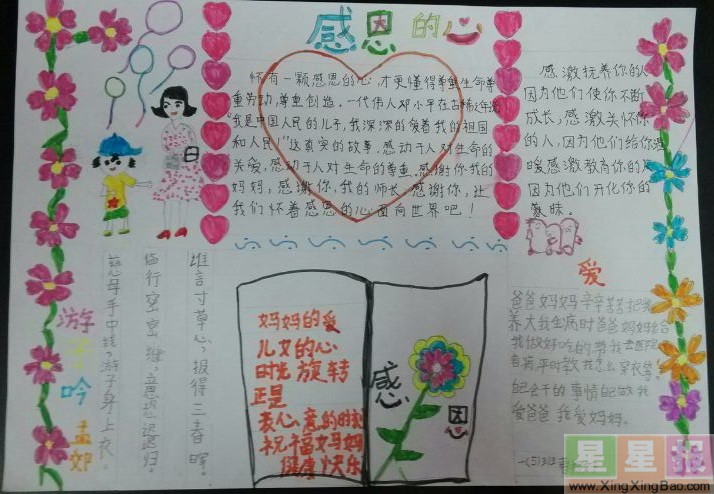 感恩的心
怀有一颗感恩的心,才更懂得尊重生命尊
重劳动,尊重创造。一代伟人邓小平在古稀之年说
"我是中国人民的儿子,我深深的爱着我的祖国
和人民!"这真实的故事,感动于人对生命的
关爱,感动于人对生命的尊重。感谢你我的
妈妈,感谢你,我的师长,感谢你,让
我们怀着感恩的心面向世界吧!
感激抚养你的人
因为他们使你不断
成长,感激关怀你
的人,因为他们给你温
暖感激教育你的人
因为他们开化你的
蒙昧。
游子吟
孟郊
慈母手中线,游子身上衣。
临行密密缝,意恐迟迟归
谁言寸草心,报得三春晖。
妈妈的爱
儿女的心
时光旋转
正是
表心意的时刻
祝福妈妈
健康快乐
感恩
爱
爸爸妈妈辛辛苦苦把我
养大我生病时爸爸妈妈给
我做好吃的带我去医院
看病平时教我怎么穿衣等
自己会干的事情自己做我
爱爸爸我爱妈妈。
一(5)班
星星报
www.XingXingBao.com